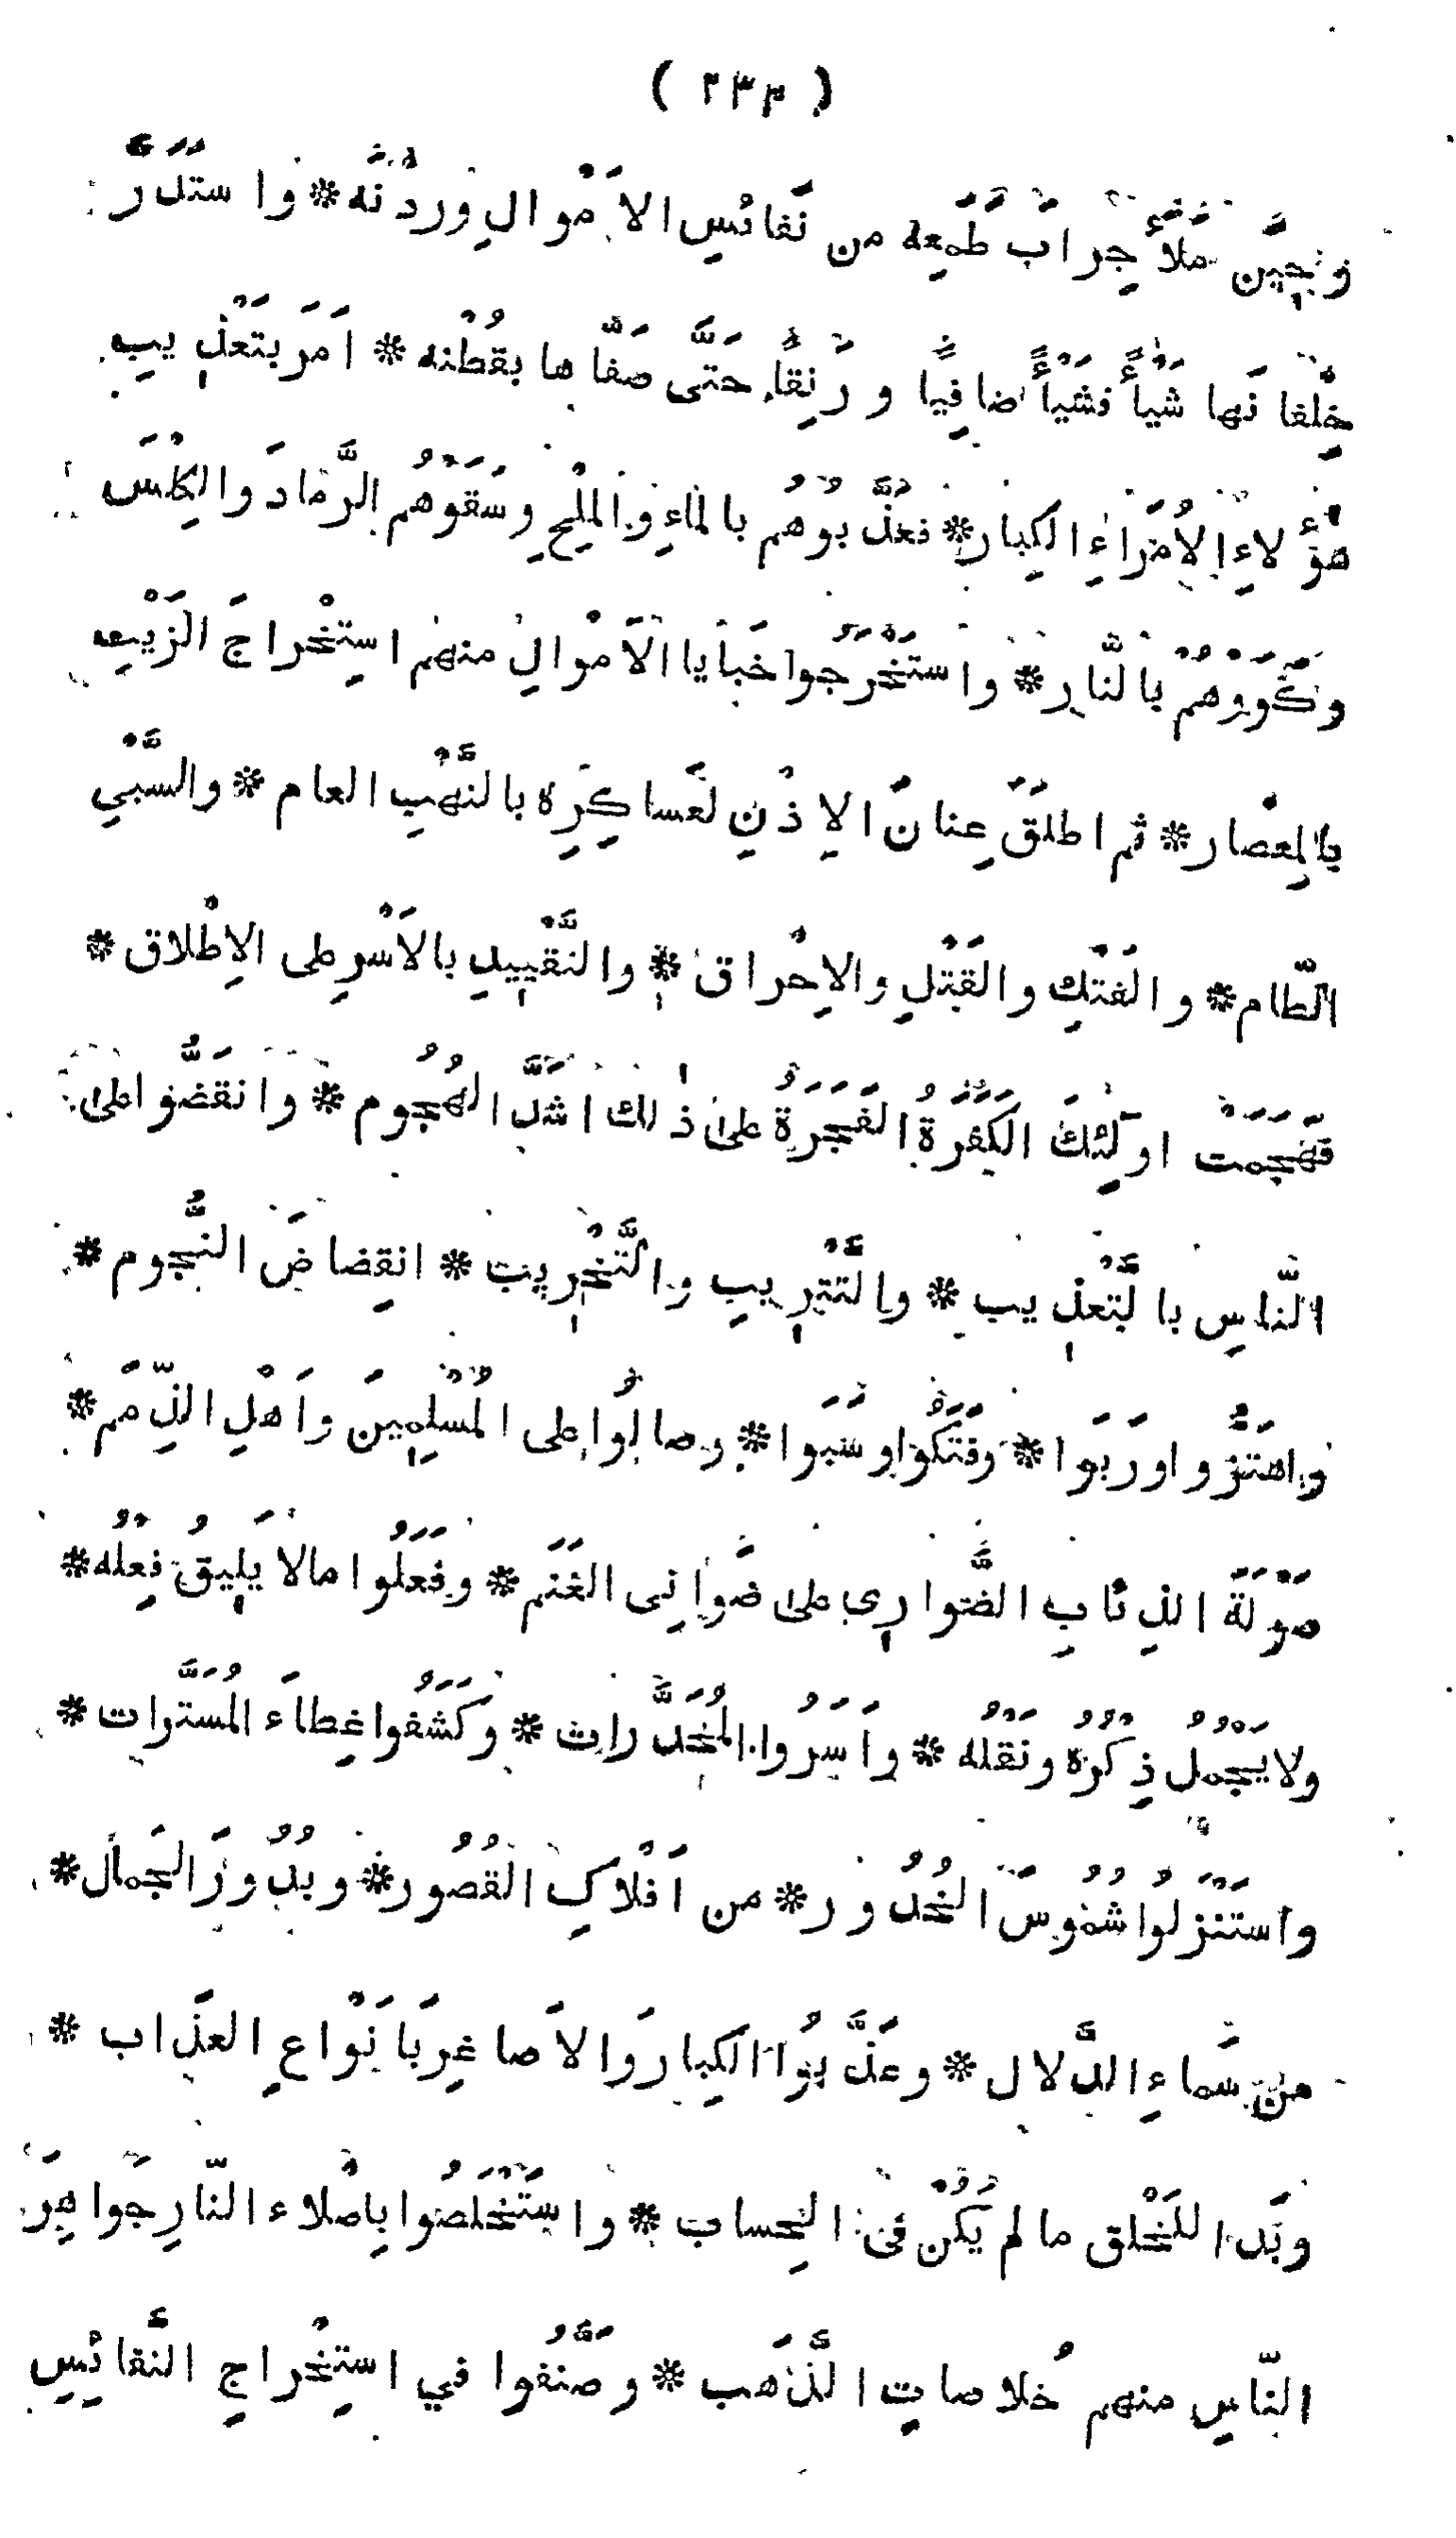 ( ٢٣٣ )
وحِيْنَ مَلَأَ جِرابَ طَمَعِه من نَفائسِ الاَمْوالِ ورُدْنَه * وا ستَدَرَّ
خِلْفا نَها شَيْأً فشَيْأً ضافِيًا ورَنِقًا حَتَّى صَفَّا ها بقُطْنه * اَمَرَ بتَعْذِ يبِ
هؤُ لاءِ الاُمَراءِ الكِبار * فعَذَّ بُوْهُم بالماءِ والمِلْحِ وسَقَوْهُم الرَّمادَ والكِلْسَ
وكَوَوْهُمْ بالنَّار * واستَخْرَجُوا خَبايا الاَمْوالِ منهم استِخْراجَ الزَيْتِ
بالمِعْصار * ثم اطلَقَ عِنانَ الاِذْنِ لعَساكِرِه بالنَّهْبِ العام * والسَّبْيِ
الطّام * والفَتْكِ والقَتْلِ والاِحْراق * والتَّقْيِيدِ بالاَسْرِ على الاِطْلاق *
فهَجَمَتْ اولٰئِكَ الكَفَرَةُ الفَجَرَةُ على ذٰلك اشَدَّ الهُجُوم * وانقَضُّوا على
النَّاسِ بالتَّعْذِيب * والتَّتْرِيبِ والتَّخْرِيب * انقِضاضَ النُّجوم *
واهتَزُّوا ورَبَوا * وفَتَكُوا وسَبَوا * وصالُوا على المُسْلِمِينَ واَهْلِ الذِّمَم *
صَوْلَةَ الذِئابِ الضَّوارِي على ضَوانِى الغَنَم * وفَعَلُوا مالا يَلِيقُ فِعْلُه *
ولا يَجْمُلُ ذِكْرُه ونَقْلُه * واَسَرُوا المُخَدَّرات * وكَشَفُوا غِطاءَ المُسَتَّرات *
واستَنْزَلُوا شُمُوسَ الخُدُور * من اَفْلاكِ القُصُور * وبُدُورَ الجَمال *
من سَماءِ الدَّلال * وعَذَّبُوا الكِبارَ والاَصاغِرَ بَاَنْواعِ العَذاب *
وبَدا للخَلْق ما لم يَكُنْ فى الحِساب * واسْتَخْلَصُوا بِاِصْلاءِ النّارِ جَواهِرَ
النّاسِ منهم خُلاصاتِ الذَّهَب * وصَنَّفُوا في استِخْراجِ النَّفائِسِ